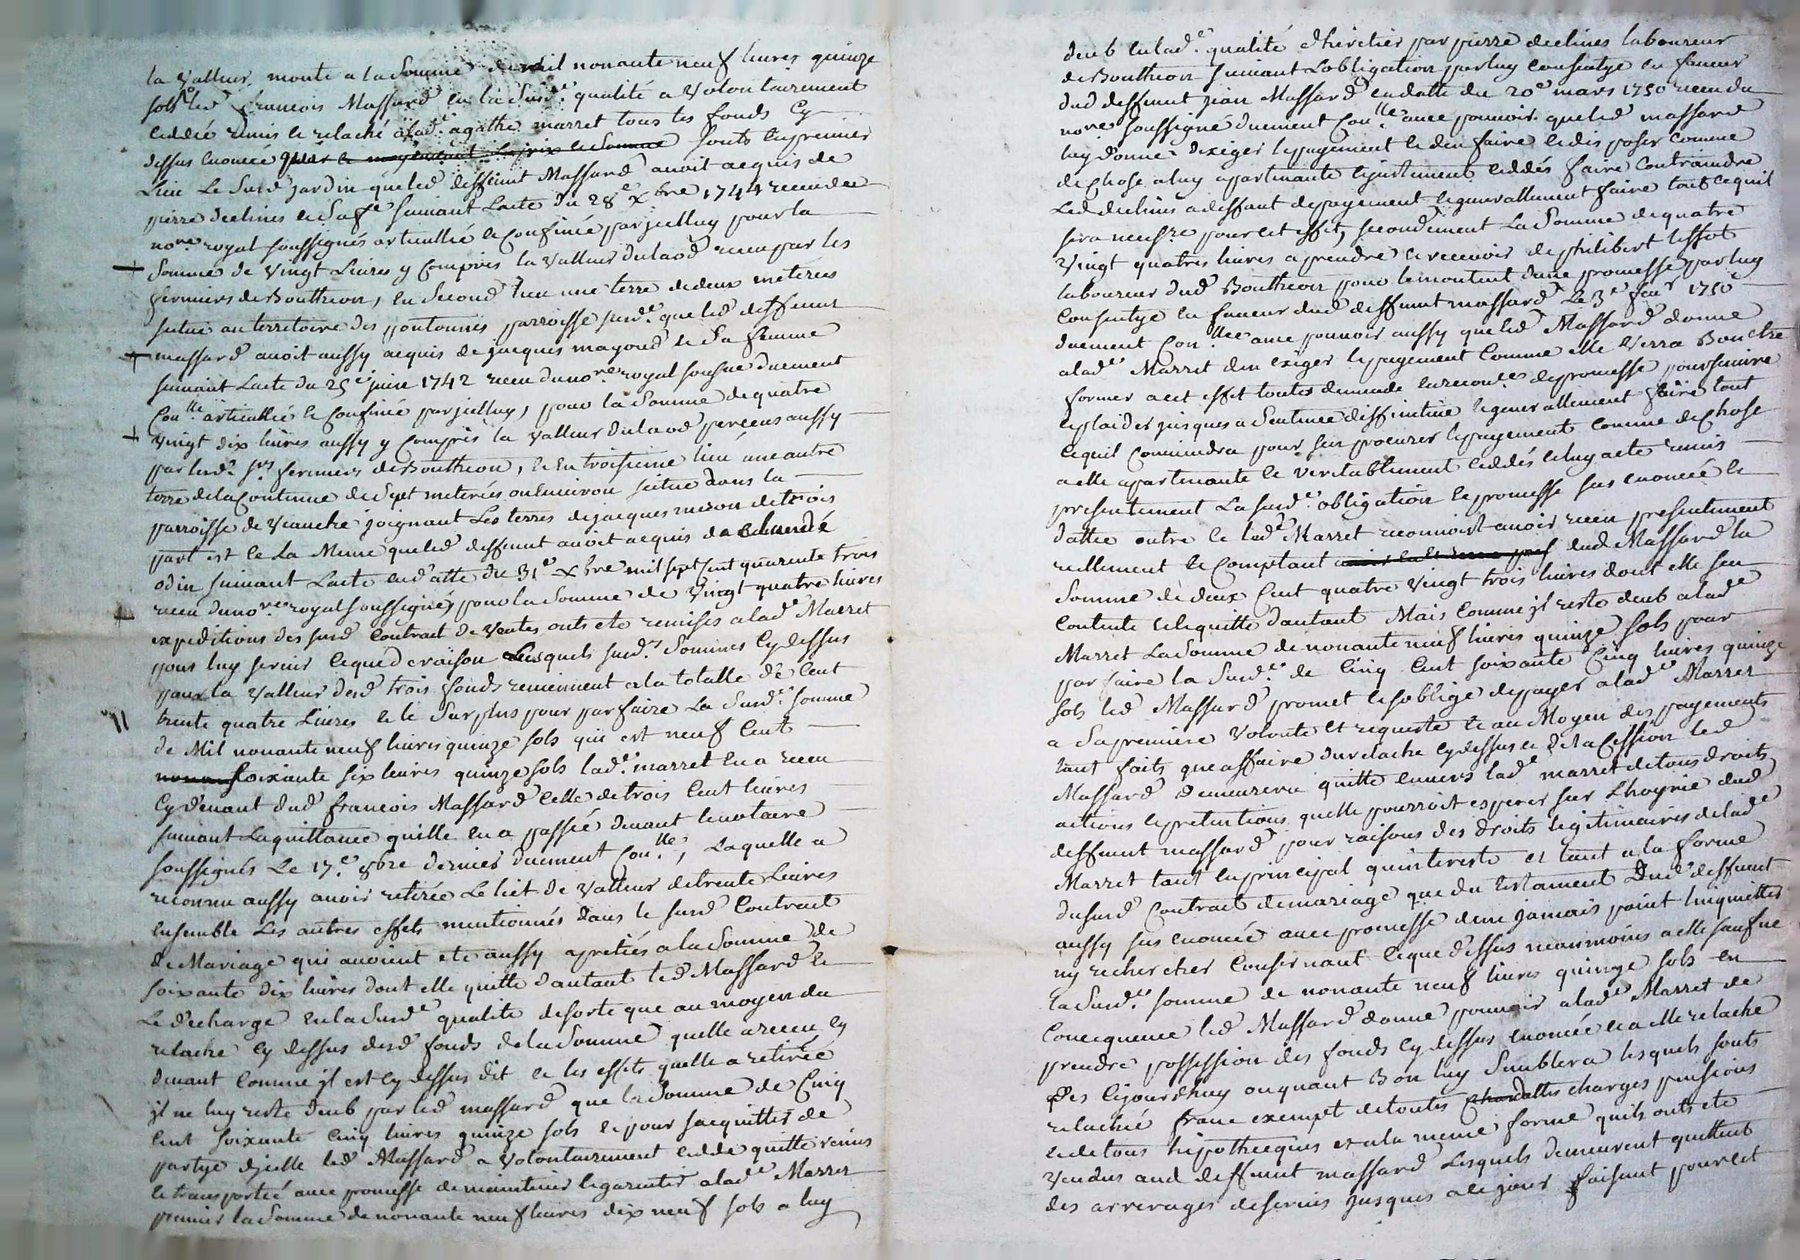 la Valleur, monte a la Somme de mil nonante neuf livres quinze
sols led françois Massard en la Susd.e qualité a Volontairement
ceddé remis et relaché a lad.e agathe marret tous les fonds cy
dessus enoncé quils sonts En premier
Lieu Le Susd jardin que led deffunt Massard avoit acquis de
pierre declines et Sa fe suivant Lacte du 28.e Xbre 1744 receu du
no.re royal soussignés articullié et Confinée par jcelluy pour la
Somme de Vingt Livres y Compris la Valleur du laod receu par les
fermiers de Bouthéon, en Second lieu une terre de deux meterées
scitue au territoire des pontonnés parroisse susd.e que led deffunt
massard avoit aussy acquis de jacques mayoud et Sa femme
suivant Lacte du 25.e juin 1742 receu du no.re royal sousne duement
Con.llé articulliés et Confinée par jcelluy, pour la Somme de quatre
Vingt dix livres aussy y Compris la Valleur du laod perceus aussy
par lesd. srs fermiers de Bouthéon, et En troisieme lieu une autre
terre de la Contenue de Sept meterées ou Environ scitue dans la
parroisse de Veauche joignant Les terres de jacques de trois
part est et La Meme que led deffunt avoit acquis de
odin suivant Lacte en datte du 31.e Xbre mil sept cent quarente trois
receu du no.re royal soussigné, pour la Somme de Vingt quatre livres
expeditions des susd Contract de Ventes onts ete remises a lad.e Marret
pour luy servir ce que d raison Lesquels susd.es Sommes Cy dessus
pour la Valleur desd trois fonds reviennent a la totalle de Cent
trente quatre Livres et le Surplus pour parfaire La Susd.e Somme
de Mil nonante neuf livres quinze sols qui est neuf Cent
soixante six livres quinze sols lad.e marret en a receu
Cy devant dud françois Massard Celle de trois Cent livres
suivant la quittance quelle en a passée devant le notaire
soussignés Le 17.e 8bre dernier duement Con.llé, Laquelle a
reconnu aussy avoir retirée Le liet de Valleur de trente Livres
Ensemble Les autres effets mentionnés dans le susd Contract
de Mariage qui avoient ete aussy apretiés a la Somme de
soixante dix livres dont elle quitte dautant led Massard et
Le decharge en la Susd.e qualite de sorte que au moyen du
relache cy dessus desd fonds de la Somme quelle a receu cy
devant Comme jl est Cy dessus dit et les effets quelle a retirée
jl ne luy reste deub par led massard que la Somme de Cinq
Cent soixante Cinq livres quinze sols et pour sacquitter de
partye djcelle led Massard a Volontairement cedde quitte remis
et transportée avec promesse de maintenir et garentir a lad.e Marret
premier la Somme de nonante neuf livres dix neuf sols a luy
deub en lad.e qualité dheretier par pierre declines laboureur
de Bouthéon suivant Lobligation par luy Consentye en faveur
dud deffunt jean Massard en datte du 20.e mars 1750 receu du
no.re soussigné duement Con.llé avec pouvoir que led massard
luy donne dexiger le payement et den faire et disposer comme
de Chose a luy apartenante et justement ceddés faire Contraindre
Led declines a deffaut de payement et generallement faire tout ce quil
sera necess.re pour cet effet, secondement La Somme de quatre
Vingt quatres livres a prendre et recevoir de philibert Lissot
laboureur dud Bouthéon pour le montent dune promesse par luy
Consentye en faveur dud deffunt massard Le 3.e feur 1750
duement Con.llée avec pouvoir aussy que led Massard donne
a lad.e Marret den exiger le payement Comme elle Verra Bon etre
former a cet effet toutes demande de promesse poursuivre
et plaider jusques a Sentence diffinitive et generallement faire tout
ce quil Conviendra pour sen procurer le payement comme de Chose
a elle apartenante et Veritablement ceddés et luy a ete remis
presentement La susd.e obligation et promesse sus enoncée et
dattée outre ce lad.e Marret reconnoist avoir receu presentement
reellement et Comptant dud Massard la
Somme de deux Cent quatre Vingt trois livres dont elle sen
Contente et le quitte dautant Mais Comme jl reste deub a lad.e
Marret La Somme de nonante neuf livres quinze sols pour
par faire la Susd.e de Cinq Cent soixante Cinq livres quinze
sols led Massard promet et soblige de payer a lad.e Marret
a Sa premiere Volonté et requeste et au Moyen des payements
tant faits que affaire du relache cy dessus et de la Cession led
Massard demeurera quitte envers lad.e marret de tous droits
actions et pretentions quelle pourroit esperer sur Lhoyrie dud
deffunt massard pour raisons des droits legitimaires de lad.e
Marret tant En principal quinterests et tant a la forme
du susd Contract de mariage que du testament dud.t deffunt
aussy sus enoncée avec promesse de ne jamais point linquietter
ny rechercher Confirmant ce que dessus neanmoins a elle sauf ne
la Susd.e Somme de nonante neuf livres quinze sols en
Concequence led Massard donne pouvoir a lad.e Marret de
prendre possession des fonds Cy dessus enoncée et a elle relaché
Des Cejourdhuy ou quant Bon luy Semblera lesquels sonts
relachée franc exempt de toutes charges pensions
et de tous hipothecques et a la meme forme quils onts ete
Vendus aud deffunt massard Lesquels demeurent quittent
des arrerages de servis jusques a ce jour faisant pour cet